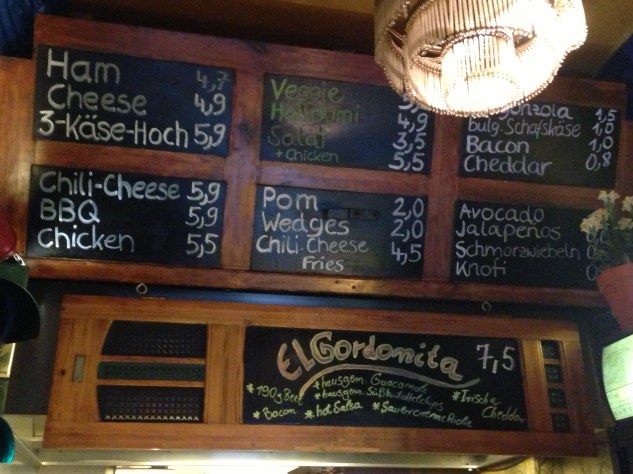 Ham 4,7
Cheese 4,9
3-Käse-Hoch 5,9
Veggie
Halloumi 4,9
Salat 3,5
+ Chicken 5,5
Gorgonzola 1,5
bulg. Schafskäse 1,0
Bacon 1,0
Cheddar 0,8
Chili-Cheese 5,9
BBQ 5,9
Chicken 5,5
Pom 2,0
Wedges 2,0
Chili-Cheese 4,5
Fries
Avocado
Jalapeños
Schmorzwiebeln
Knofi
El Gordonita 7,5
*190g Beef
*hausgem. Guacamole
*hausgem. Süßkartoffelchips
*Irischer
Cheddar
*Bacon
*hot Salsa
*Sauercreme